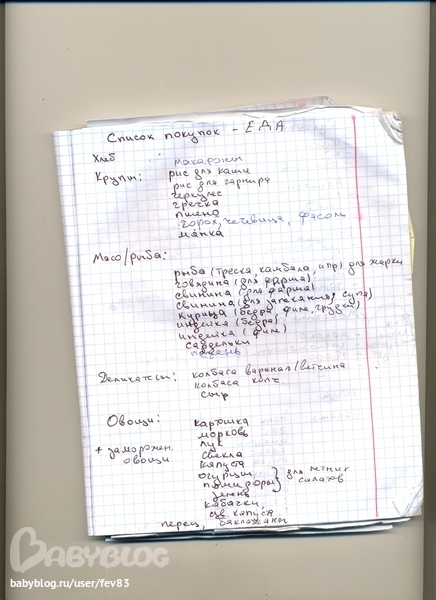 Список покупок - ЕДА
Хлеб
макароны
Крупы:
рис для каши
рис для гарнира
геркулес
гречка
пшено
горох, чечевица, фасоль
манка
Мясо/рыба:
рыба (треска, камбала, и пр) для жарки
говядина (для фарша)
свинина (для фарша)
свинина (для запекания, супа)
курица (бедра, филе, грудки)
индейка (бедра)
индейка (филе)
сардельки
печень
Деликатесы:
колбаса вареная/ветчина
колбаса копч.
сыр
Овощи:
картошка
морковь
* заморожен. овощи
лук
свекла
капуста
огурцы
помидоры } для летних салатов
зелень
кабачки
цв. капуста
перец, баклажаны
BABYBLOG
babyblog.ru/user/fev83